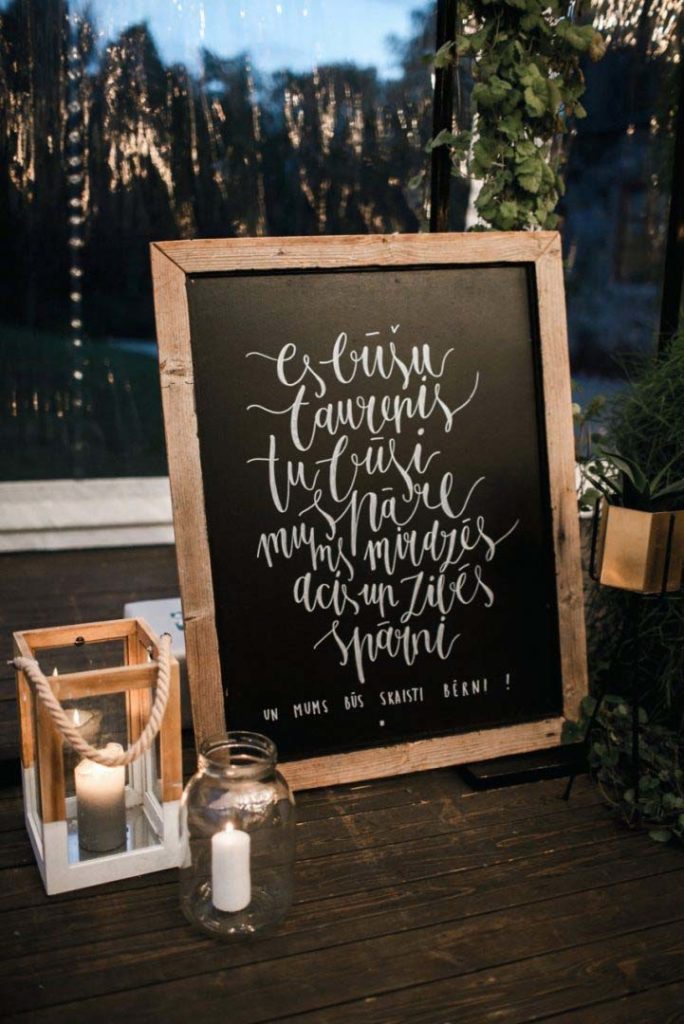 es būšu
taurenis
tu būsi
spāre
mums mirdzēs
acis un zibēs
spārni
UN MUMS BŪS SKAISTI BĒRNI !